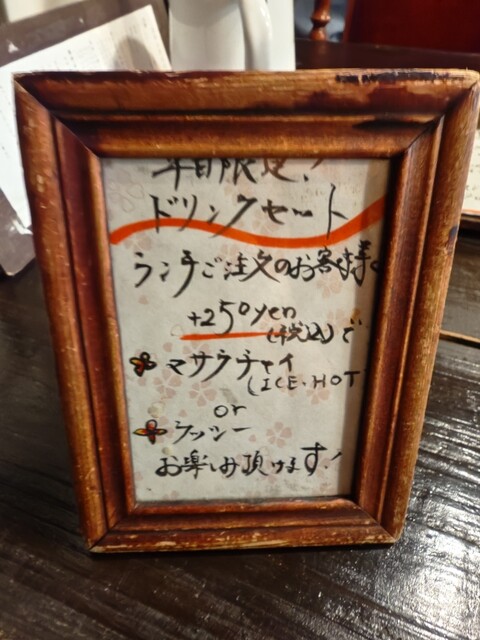 平日限定!
ドリンクセット
ランチご注文のお客様
+250yen
(税込)で
マサラチャイ
(ICE・HOT
or
ラッシー
お楽しみ頂けます!